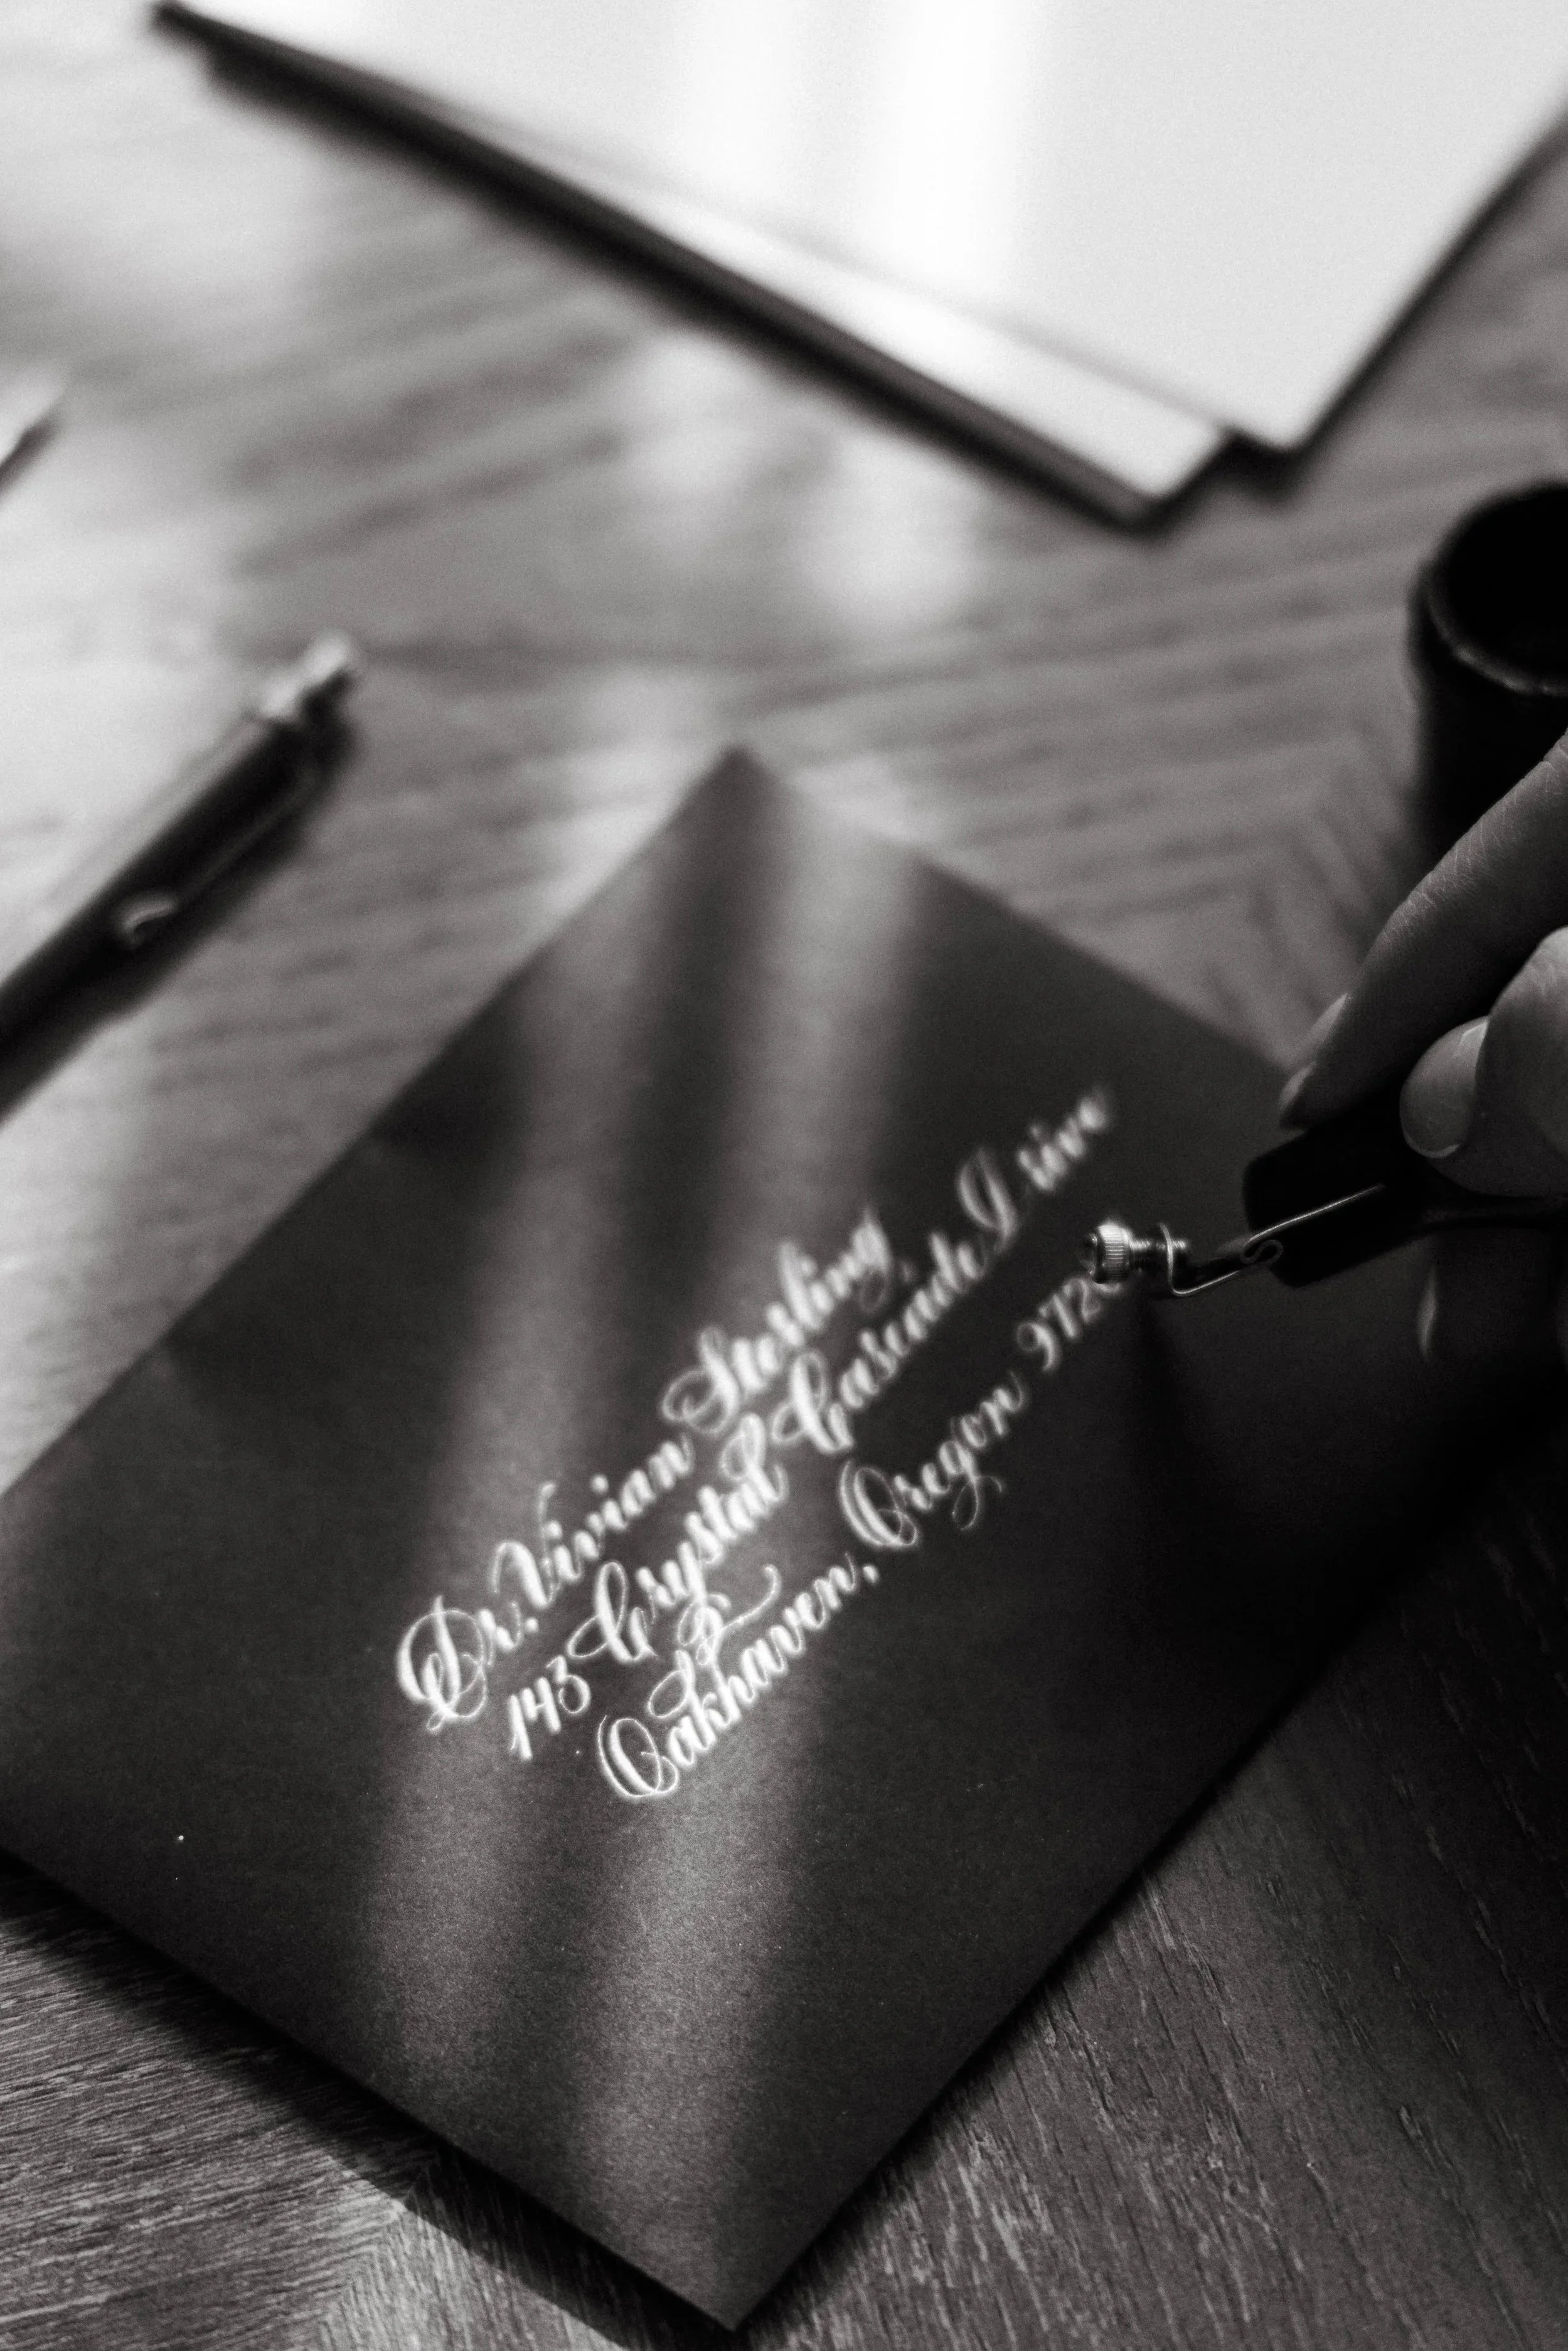 Dr. Vivian Sterling
143 Crystal Cascade Drive
Oakhaven, Oregon